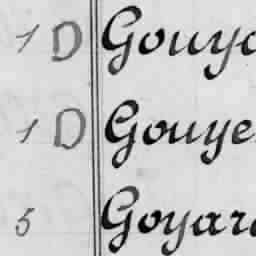 1 D Gouy
1 D Gouye
5 Goyar